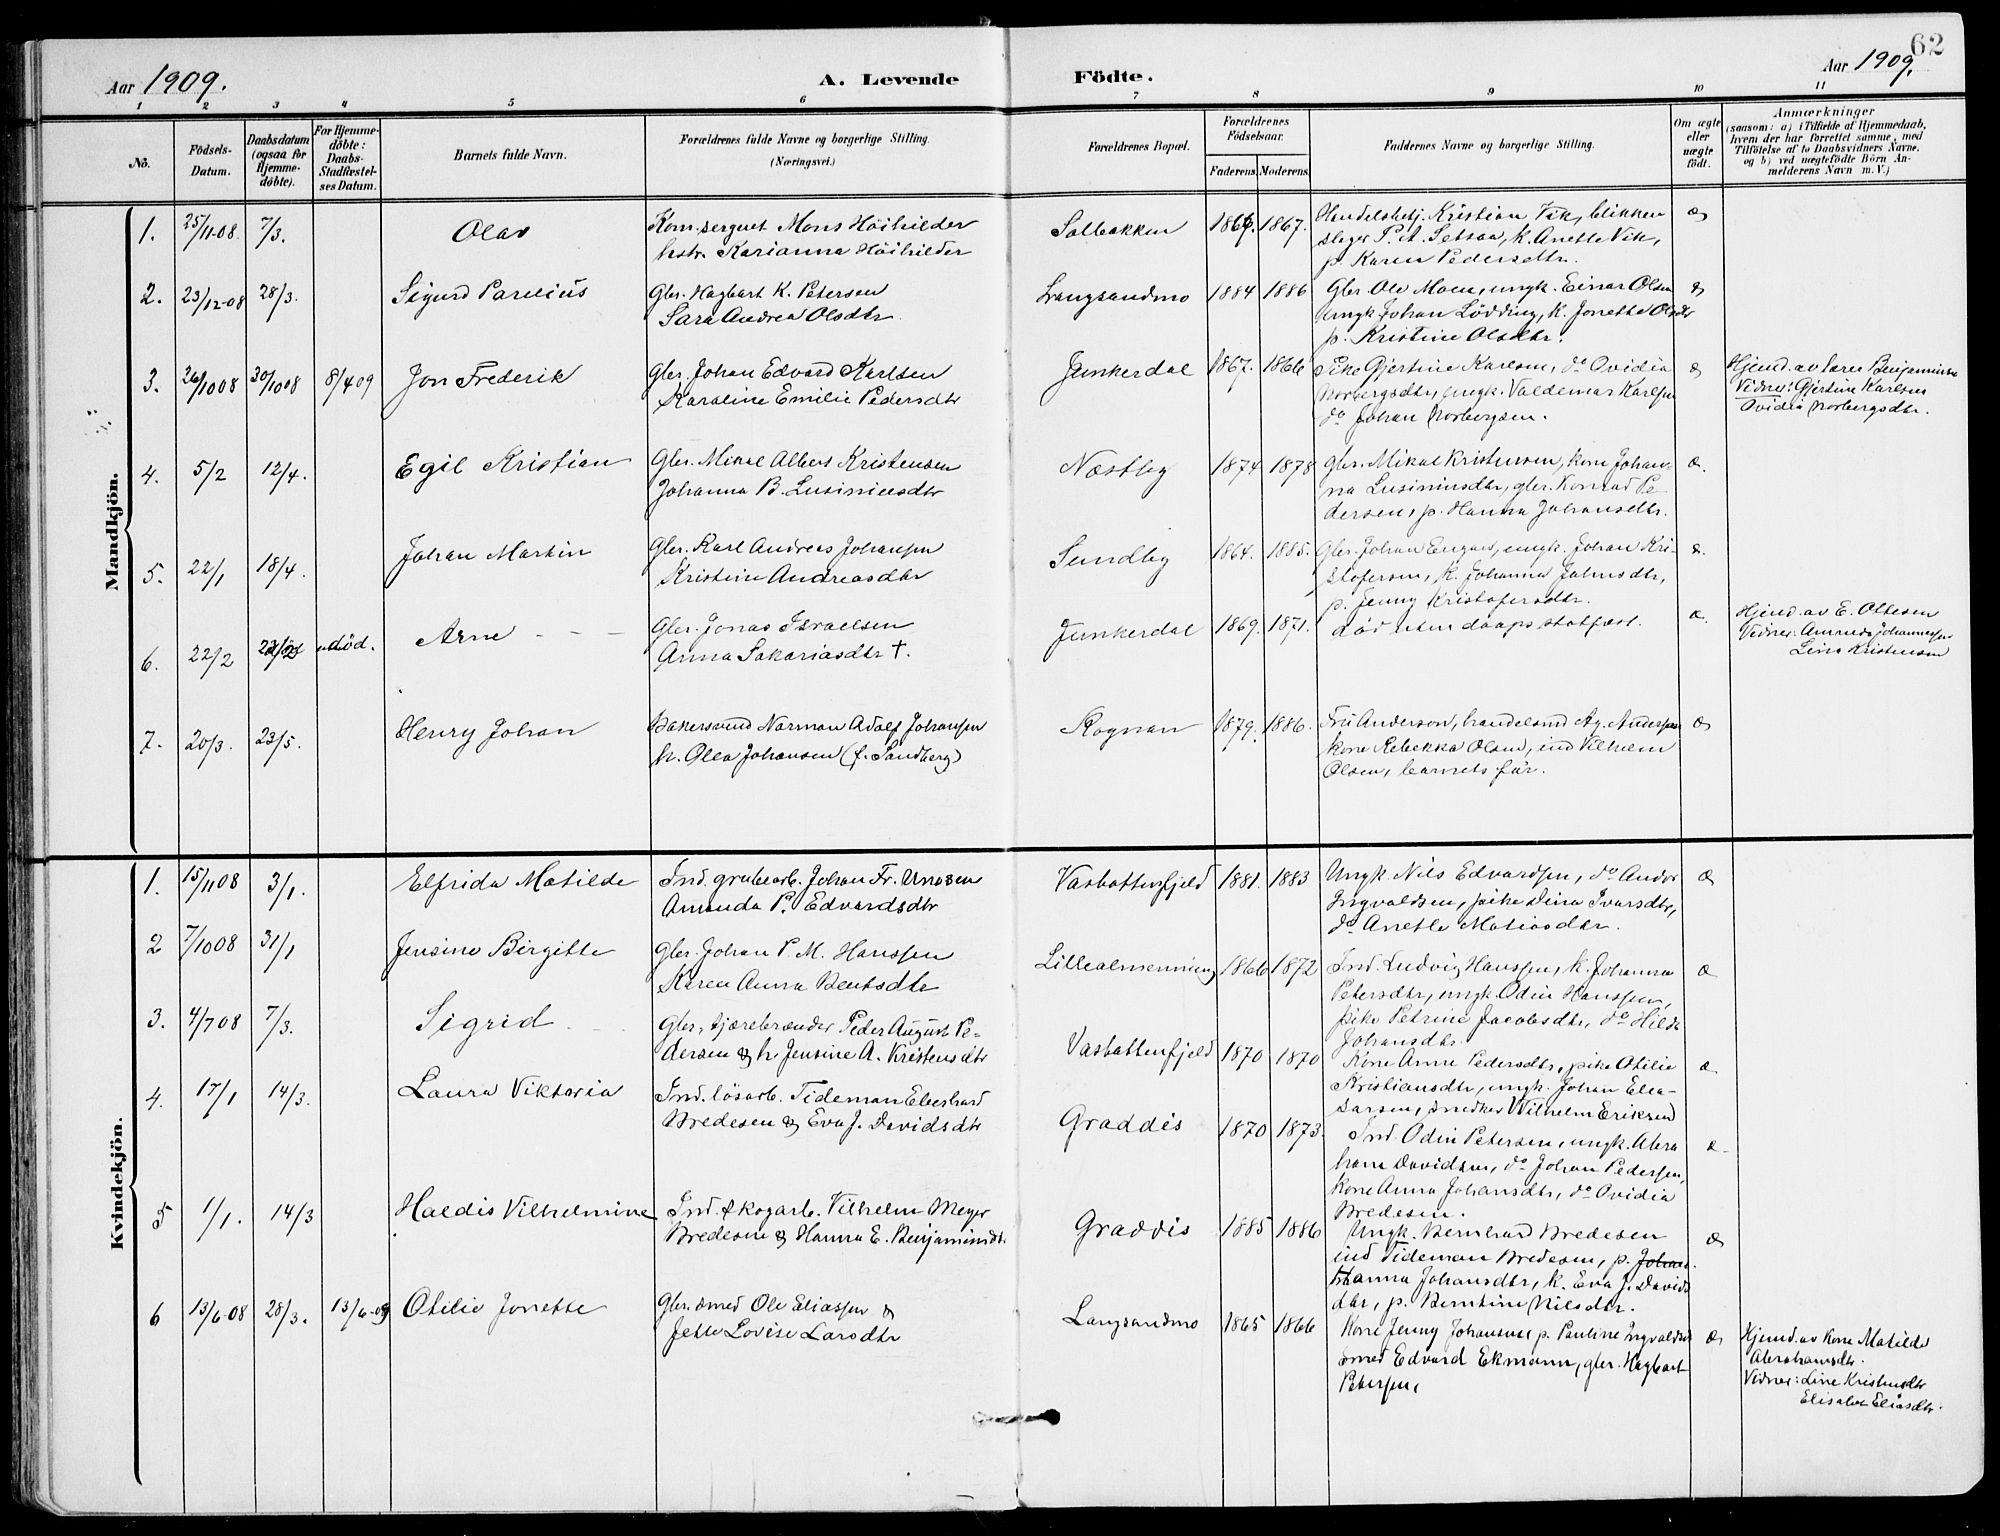 62
Aar 1909.
A. Levende Födte.
Aar 1909.
1 2 3 4 5 6 7 8 9 10 11
No.
Födsels-Datum.
Daabsdatum (ogsaa for Hjemme-döbte).
For Hjemme-döbte: Daabs-Stadfæstel-ses Datum.
Barnets fulde Navn.
Forældrenes fulde Navne og borgerlige Stilling.
(Næringsvei.)
Forældrenes Bopæl.
Forældrenes Födselsaar.
Faderens. Moderens.
Faddernes Navne og borgerlige Stilling.
Om ægte eller uægte födt.
Anmærkninger
(saasom: a) i Tilfælde af Hjemmedaab,
hvem der har forrettet samme, med
Tilföielse af to Daabsvidners Navne,
og b) ved uægtefödte Börn An-
melderens Navn m. V.)
Mandkjön.
1. 25/11-08. 7/3. Olav
Kom. sergnet Mons Höihilder
hstr. Karianna Höihilder
Solbakken 1867.
Handelsbetj. Kristian Vik, blikken
slager P. A. Setsaa, k. Anette Vik,
p. Karen Pedersdtr.
æ
2. 23/12-08 28/3. Sigurd Parelius
Gbr. Hagbart K. Petersen
Sara Andrea Olsdtr.
Langsandmo 1884 1886
Gbr. Ole Moen, ungk. Einar Olsen
ungk Johan Lödding, k. Jonette Olsdtr
p. Kristine Olsdtr.
æ
3. 26/10 08 30/10 08 8/4 09 Jon Frederik
Gbr. Johan Edvard Karlsen
Karoline Emilie Pedersdtr
Junkerdal 1867. 1866
Pike Gjertine Karlsen, do Ovidia
Norbergsdtr, ungk. Valdemar Karlsen
do Johan Norbergsen.
æ
Hjemd. av Benjaminsen
Vidner: Gjertine Karlsen
Ovidia Norbergsdtr.
4. 5/2 12/4. Egil Kristian
Gbr. Mikal Albert Kristensen
Johanna B. Lusiniusdtr
Næstby 1874 1878
Gbr. Mikal Kristensen, kone Johan-
na Lusiniusdtr, gbr. Konrad Pe-
dersen, p. Hanna Johansdtr.
æ.
5. 22/1 18/4. Johan Martin
Gbr. Karl Andreas Johansen
Kristine Andreasdtr
Sundby 1864. 1885.
Gbr. Johan Engan, ungk. Johan Kri-
stofersen, k. Johanna Johnsdtr,
p. Jenny Kristofersdtr.
æ.
6. 22/2 död. Arne
Gbr. Jonas Israelsen
Anna Sakariasdtr †.
Junkerdal 1869. 1871.
Död uten daapsstatfæst.
æ.
Hjemd. av E. Ottesen
Vidner: Johannesen
Lina Kristensen
7. 20/3. 23/5. Henry Johan
Bakersvend Norman Adolf Johansen
h. Olea Johansen (f. Sandberg)
Rognan 1879. 1886.
Fru Anderson, handelsmd Ag. Andersen
kone Rebekka Olsen, ind Vilhelm
Olsen, barnets får.
æ
Kvindekjön.
1. 15/11 08 3/1. Elfrida Matilde
Ind. grubearb. Johan Fr. Unosen
Amanda P. Edvardsdtr
Vasbottenfjeld 1881. 1883
Ungk. Nils Edvardsen, do Andor
Ingvaldsen, pike Dina Ivarsdtr,
do Anette Matiasdtr.
æ
2 7/10 08 31/1 Jensine Birgitte
Gbr. Johan P. M. Hanssen
Karen Anna Bentsdtr
Lillealmenning 1866 1872
Ind. Ludvig Hanssen, k. Johanna
Petersdtr, ungk. Odin Hanssen,
pike Petrine Jacobsdtr, do Hilda
Johansdtr.
æ
3. 4/7 08 7/3. Sigrid
Gbr, tjærebrænder Peder August Pe-
dersen & h. Jensine A. Kristensdtr
Vasbottenfjeld 1870 1870
Kone Anne Pedersdtr, pike Otilie
Kristiansdtr, ungk. Johan Elia-
sarsen, snedker Wilhelm Eriksen
æ
4. 17/1 14/3. Laura Viktoria
Ind. lösarb. Tideman Eberhard
Bredesen & Eva J. Davidsdtr
Graddis 1870 1873.
Ind. Odin Petersen, ungk. Abra
ham Davidsen, do Johan Pedersen,
kone Anna Johansdtr, do Ovidia
Bredesen.
æ
5 1/1. 14/3 Haldis Vilhelmine
Ind. skogarb. Vilhelm Meyer
Bredesen & Hanna E. Benjaminsdtr.
Graddis 1885 1886
Ungk. Bernhard Bredesen
ind Tideman Bredesen, p. Johan
Hanna Johansdtr, k. Eva J. Davids
dtr, p. Berntine Nilsdtr.
æ
6 13/6-08 28/3. 13/6-09 Otilie Jonette
Gbr. smed Ole Eliassen &
Jette Lovise Larsdtr
Langsandmo 1865 1866
Kone Jenny Johansen p. Pauline Ingvaldsen
smed Edvard Ekmann, gbr. Hagbart
Petersen,
æ
Hjemd. av kone Matilde
Abrahamsdtr.
Vidner: Line Kristensdtr
Elisabet Eliasdtr.